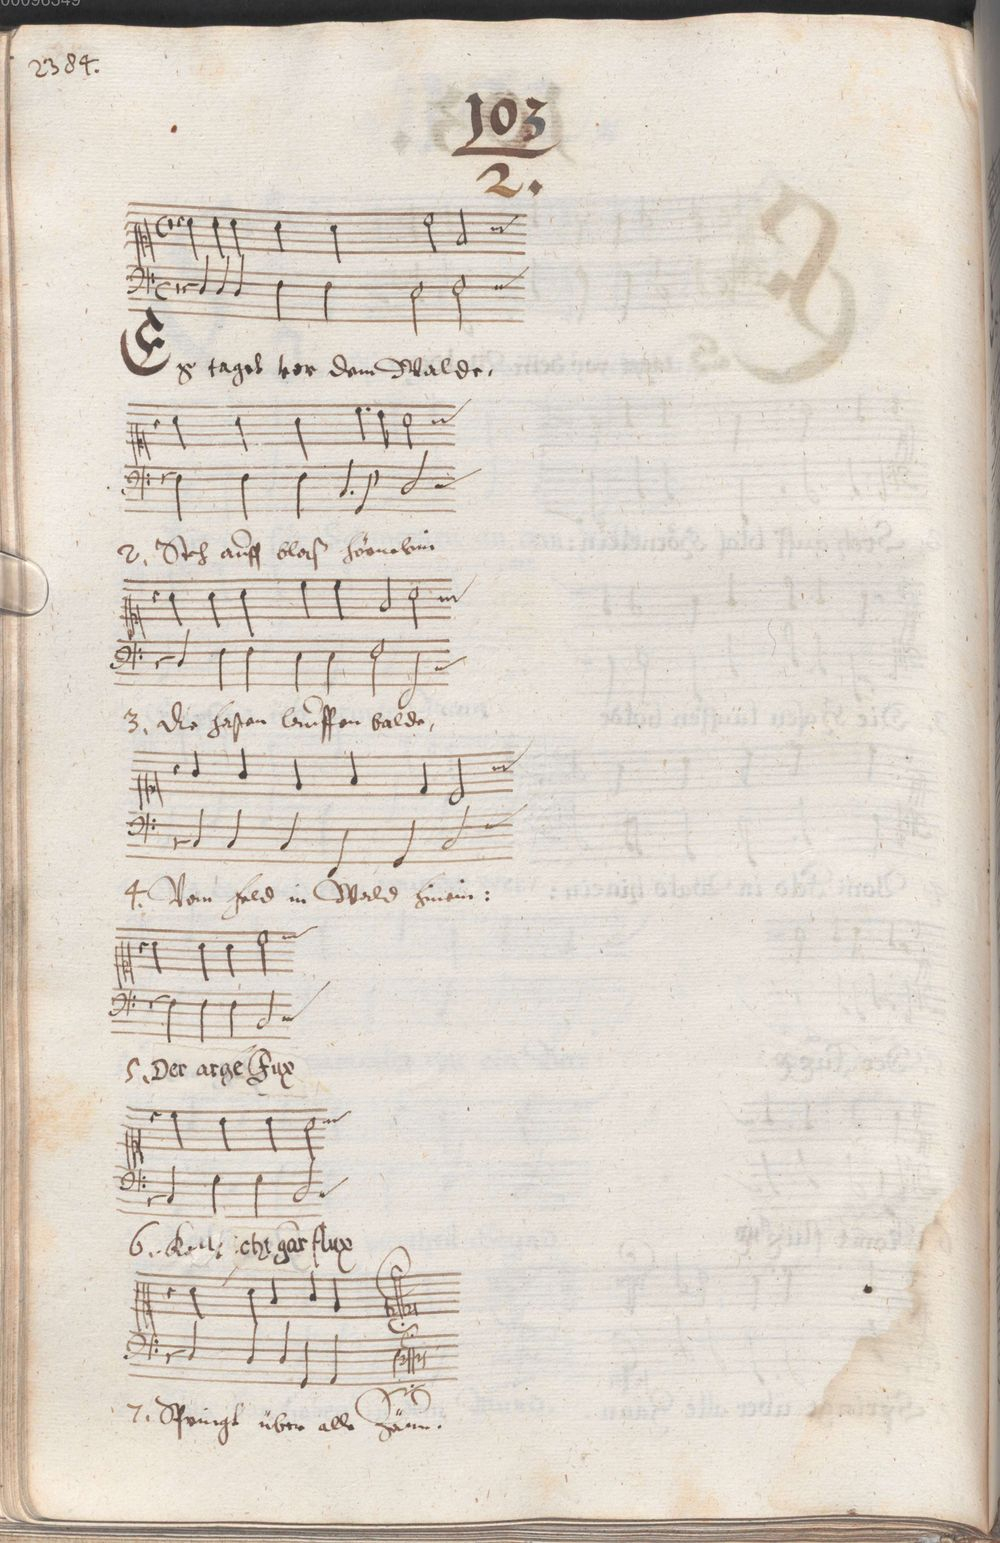 00096349
2384.
103
2.
Ex tages vor dem Walde,
2. Steh auff blaß hörnelein
3. Die haßen lauffen balde,
4. Vom feld in Wald hinein:
5. Der arge Fux
6. gar flux
7. Springt über alle Zäün.